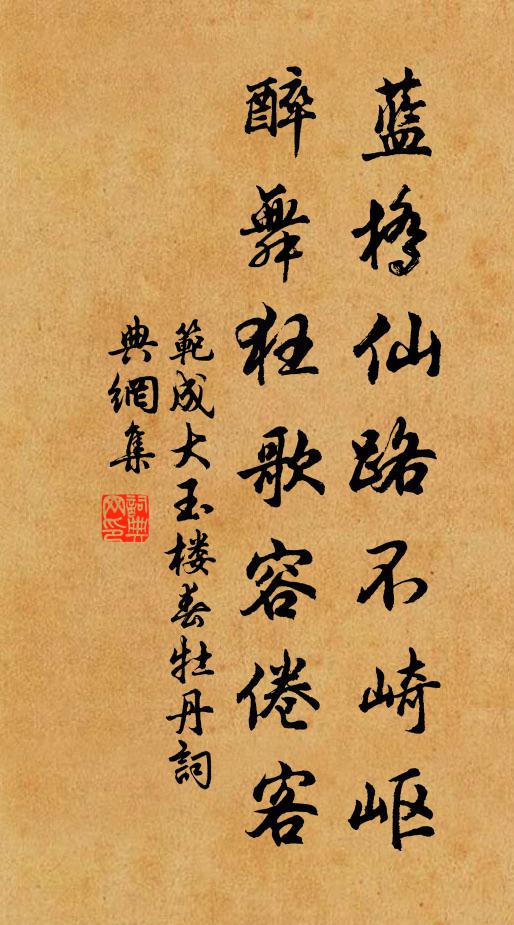 藍橋仙路不崎岖
醉舞狂歌容倦客
範成大玉楼春牡丹詞
典網集
詞典網印